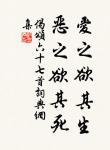 愛之欲其生
惡之欲其死
偈頌六十七首詞典網
集